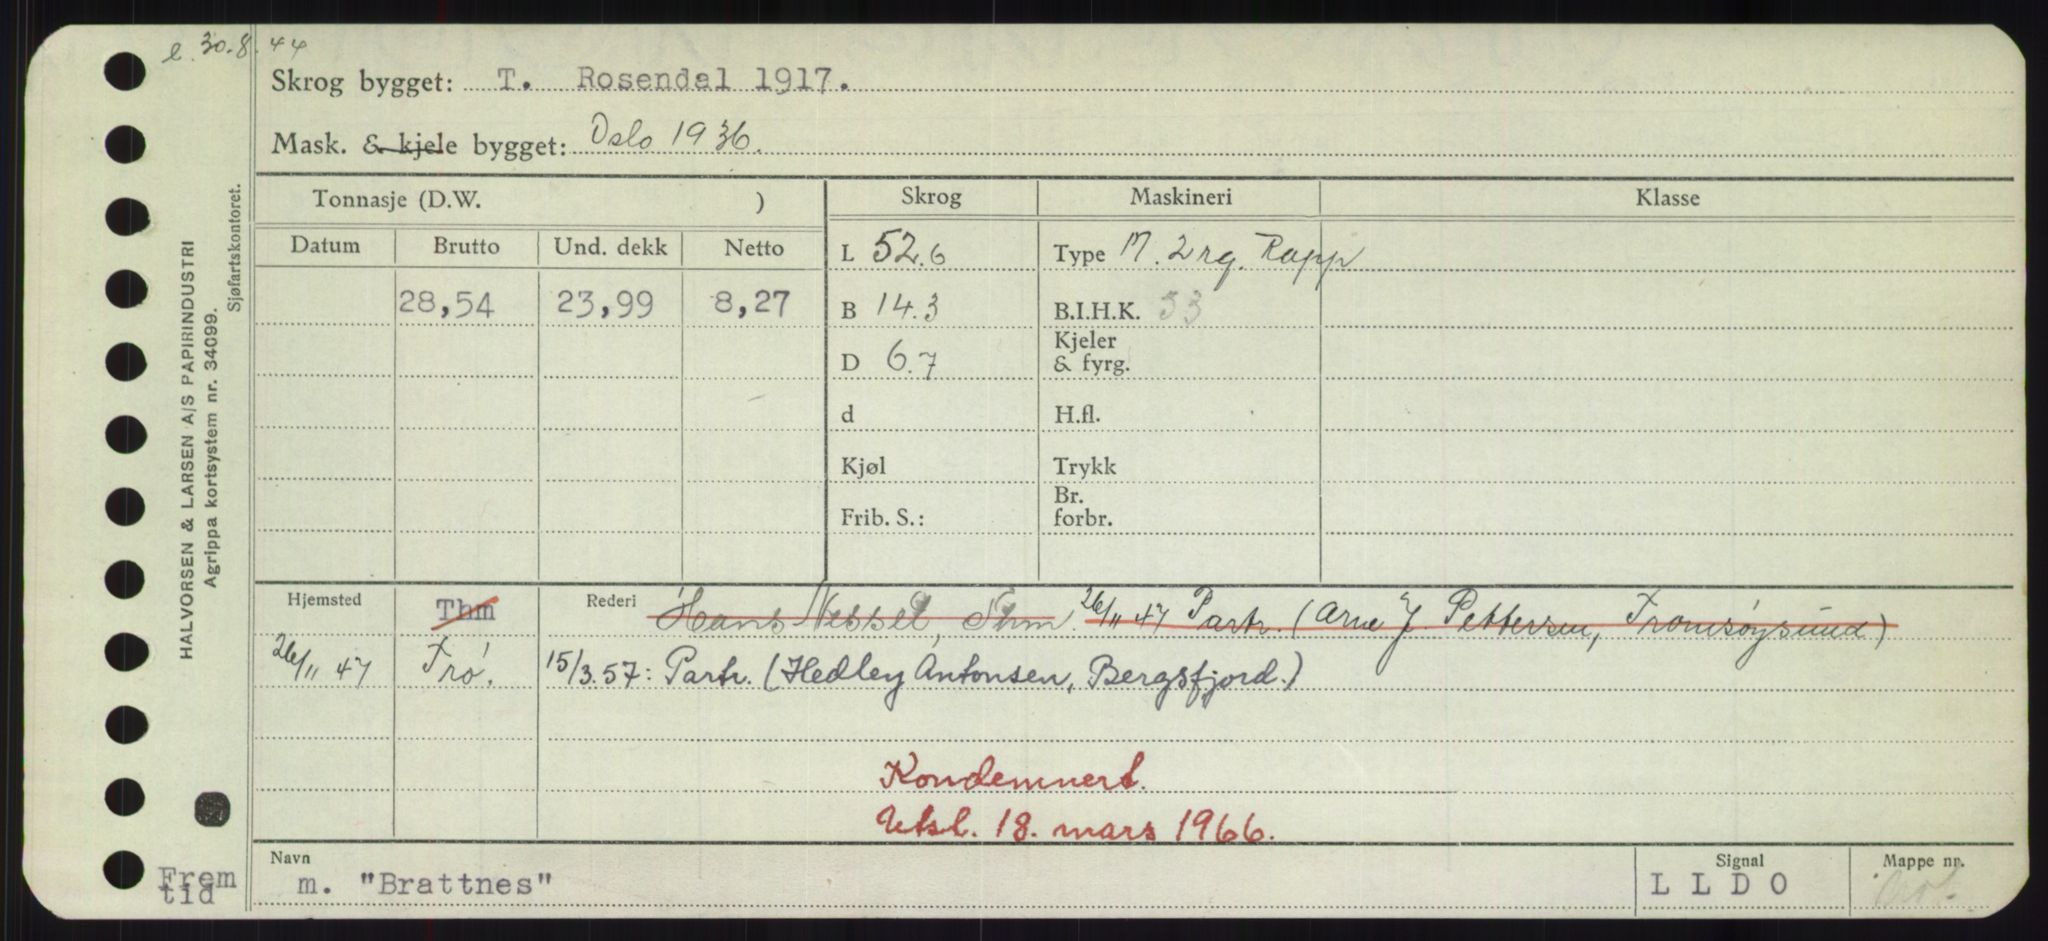 e. 30.8.44
Skrog bygget: T. Rosendal 1917.
Mask. & kjele bygget: Oslo 1936.
HALVORSEN & LARSEN A/S PAPIRINDUSTRI
Agrippa kortsystem nr. 34099.
Sjøfartskontoret.
Tonnasje (D.W. ) Skrog Maskineri Klasse
Datum Brutto Und. dekk Netto L 52.6 Type M. 2 rg. Rapp
28,54 23,99 8,27 B 14.3 B.I.H.K. 53
D 6.7 Kjeler & fyrg.
d H.fl.
Kjøl Trykk
Frib. S.: Br. forbr.
Hjemsted Thm Rederi Hans Nessel, Thm. 26/11 47 Partr. (Arne J. Pettersen, Tromsøysund)
26/11 47 Trø. 15/3.57: Partr. (Hedley Antonsen, Bergsfjord.)
Kondemnert.
Utsl. 18. mars 1966.
Navn Signal Mappe nr.
Frem
tid
m. "Brattnes" L L D O